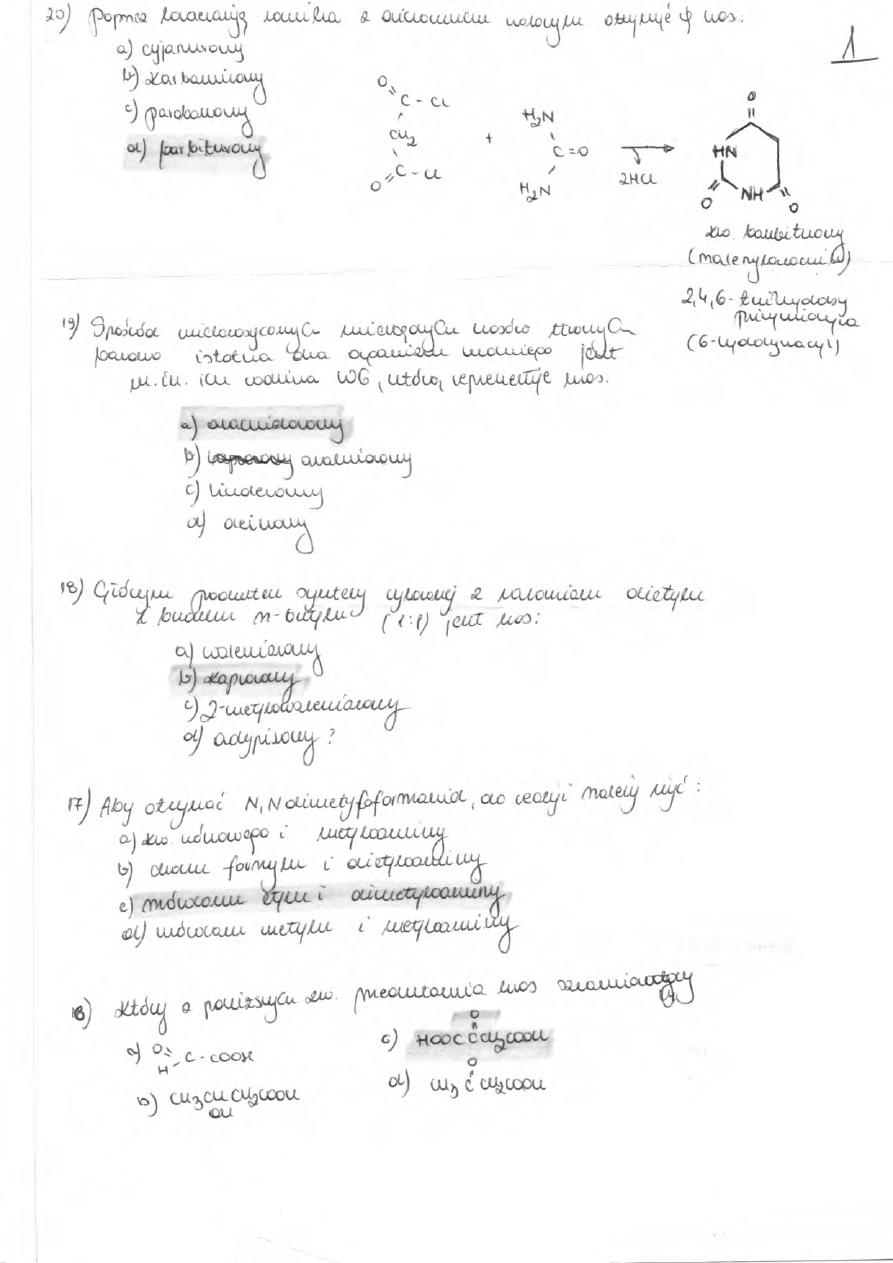 20) Poprzez kondensację mocznika z dichlorkiem malonylu otrzymuje się kwas:
1
a) cyjanurowy
b) karbaminowy
c) parabanowy
d) barbiturowy
O
C - Cl
CH2
O
C - Cl
+
H2N
C=O
H2N
2HCl
O
HN
O
NH
O
kw. barbiturowy
(malonylomocznik)
2,4,6-trihydroksy
pirymidyna
19) Spośród nienasyconych kwasów tłuszczowych
bardzo istotna dla organizmu jest
m.in. rodzina W6, którą reprezentuje kwas:
a) arachidonowy
b) arachidowy
c) linderowy
d)
18) Głównym produktem syntezy z malonianem dietylu
z n-butylu (1:1) jest kwas:
a) walerianowy
b) kapronowy
c) 2-metylowalerianowy
d) adypinowy ?
17) Aby otrzymać N,N dimetyloformamid, do reakcji należy użyć:
a) kw. mrówkowego i metyloaminy
b) formylu i dietyloaminy
c) mrówczanu etylu i dimetyloaminy
d) mrówczanu metylu i metyloaminy
Który z poniższych zw. przedstawia kwas szczawiooctowy
a) O H C - COOH
b) CH3CHCH2COOH
OH
c) HOOC C CH2COOH
O
d) CH3 C CH2COOH
O